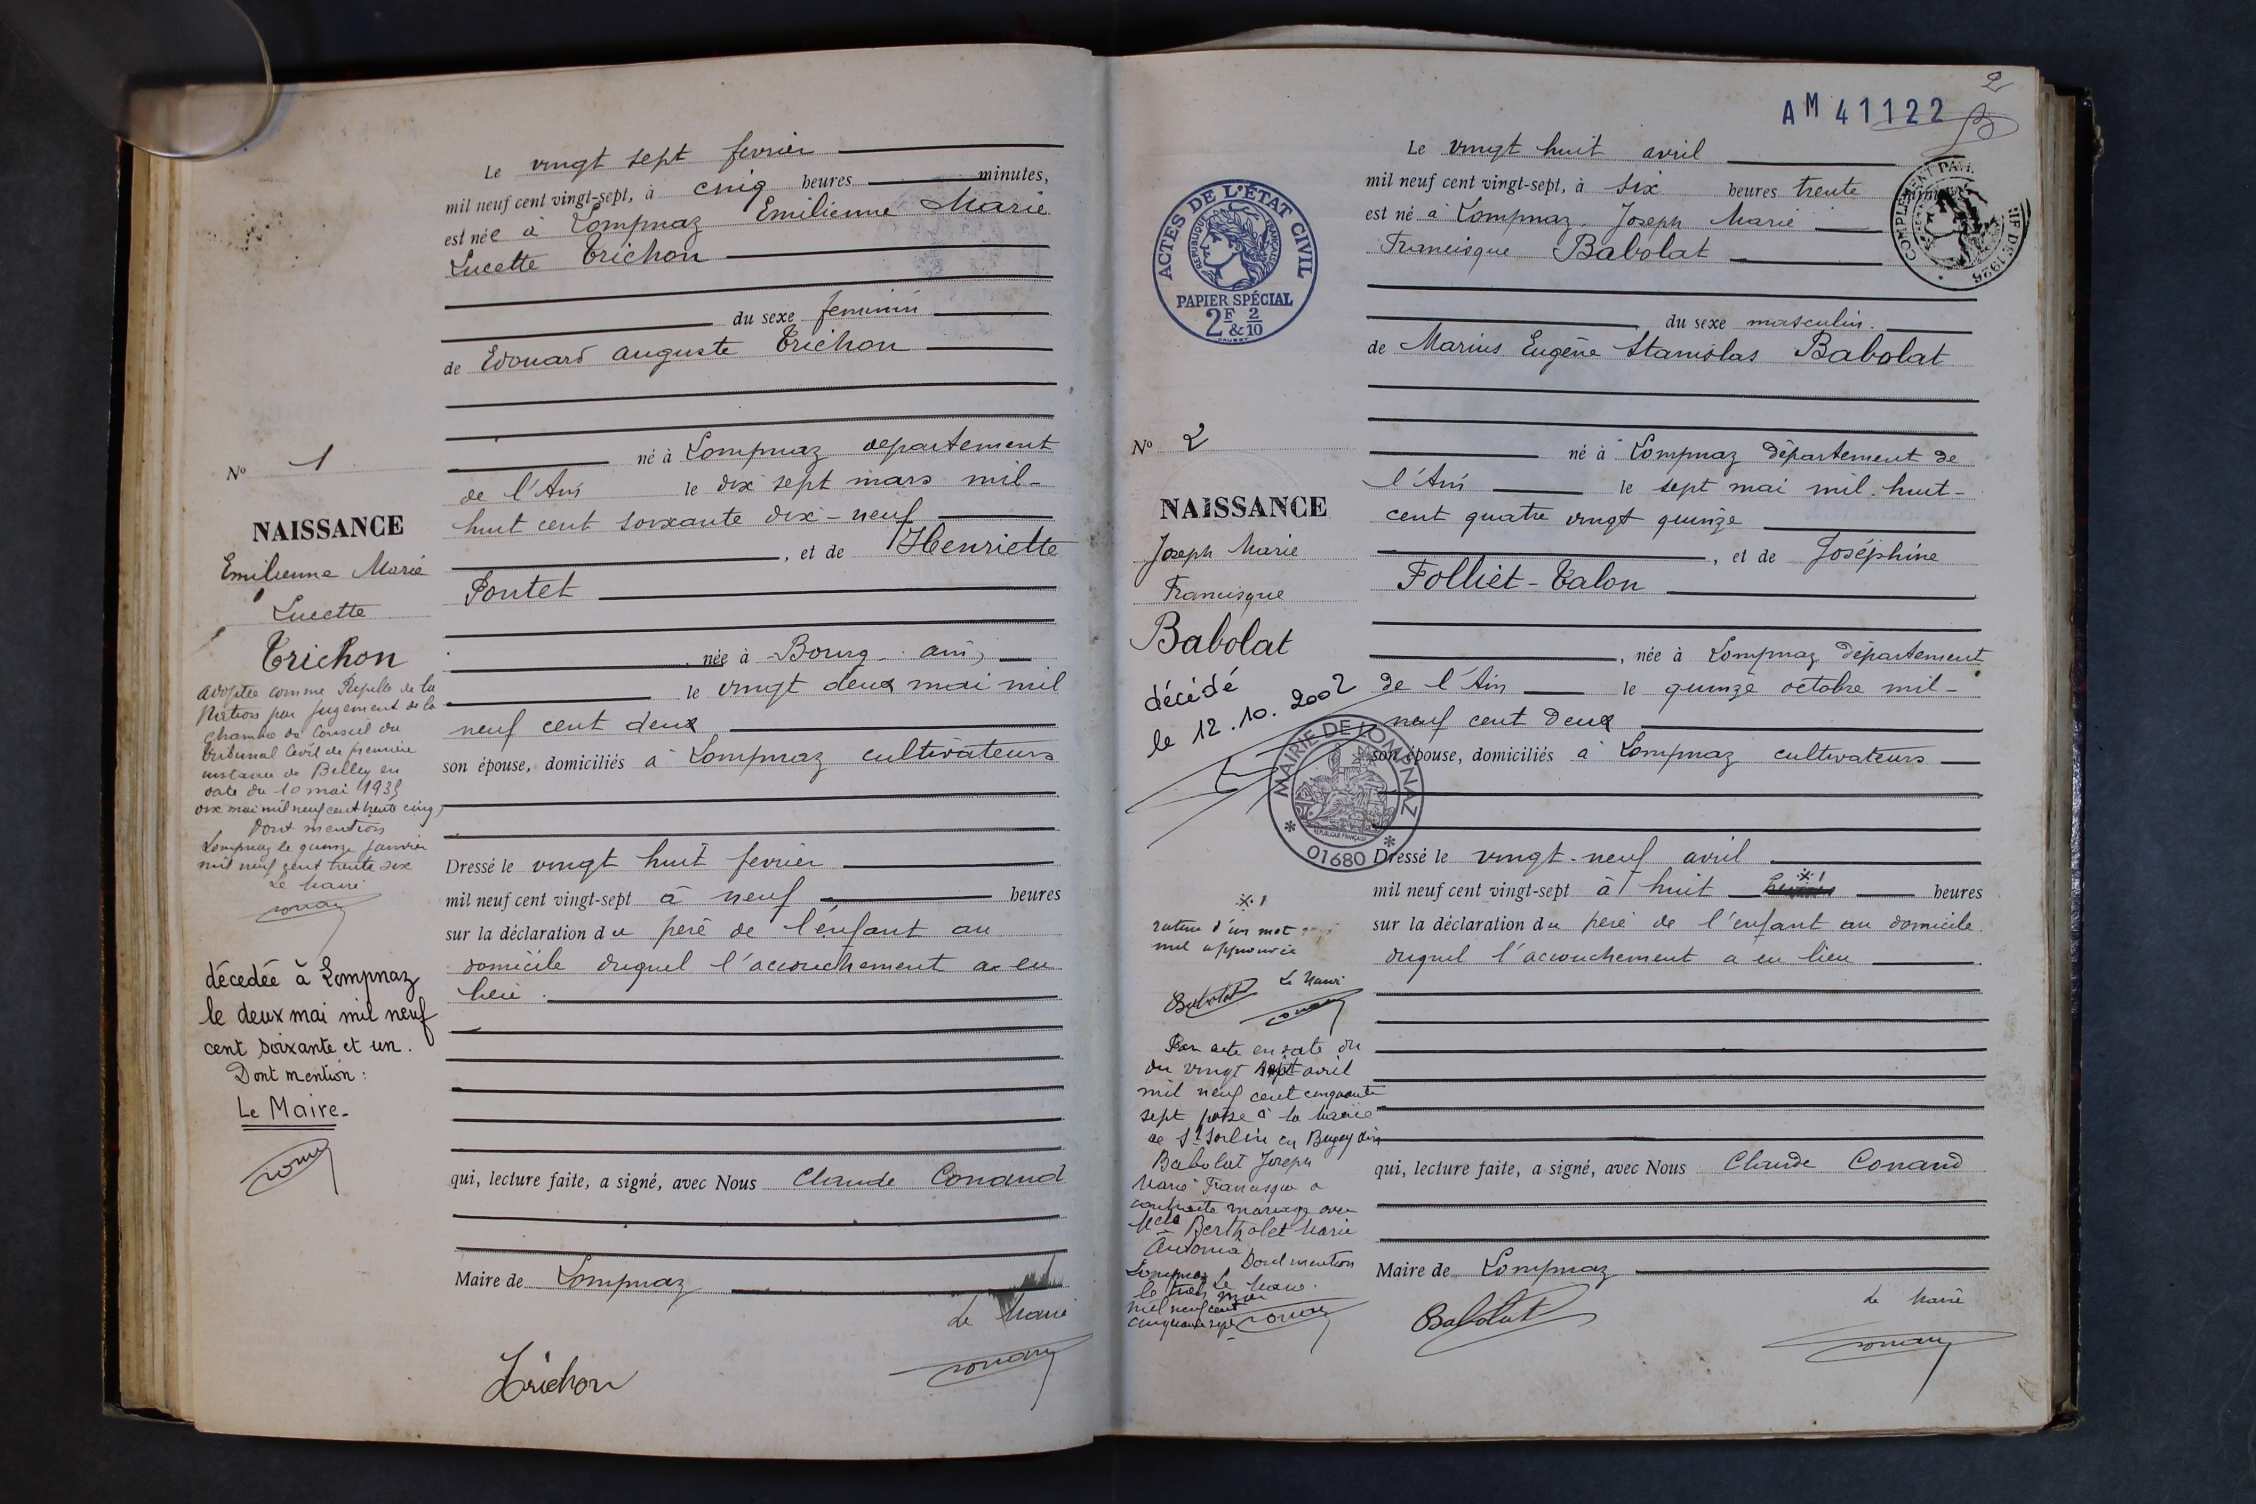 Le vingt sept fevrier
mil neuf cent vingt-sept, à cinq heures minutes,
est née à Lompnaz Emilienne Marie
Lucette Trichon
du sexe feminin
de Edouard Auguste Trichon
né à Lompnaz departement
de l'Ain le dix sept mars mil-
huit cent soixante dix-neuf
, et de Henriette
Pontet
née à Bourg ain,
le vingt deux mai mil
neuf cent deux
son épouse, domiciliés à Lompnaz cultivateurs
Dressé le vingt huit fevrier
mil neuf cent vingt-sept à neuf heures
sur la déclaration du père de l'enfant au
domicile duquel l'accouchement a eu
lieu.
qui, lecture faite, a signé, avec Nous Claude Conand
Maire de Lompnaz
Le Maire
Trichon
Conand
No 1
NAISSANCE
Emilienne Marie
Lucette
Trichon
adoptée comme Pupille de la
Nation par jugement de la
chambre du Conseil du
tribunal Civil de première
instance de Belley en
date du 10 mai 1935
dix mai mil neuf cent trente cinq,
Dont mention
Lompnaz le quinze janvier
mil neuf cent trente six
Le Maire
Conand
décedée à Lompnaz
le deux mai mil neuf
cent soixante et un.
Dont mention :
Le Maire-
Conand
2
AM 41122
ACTES DE L'ÉTAT CIVIL
RÉPUBLIQUE FRANÇAISE
PAPIER SPÉCIAL
2F & 2/10
COMPLÉMENT
1925
Le vingt huit avril
mil neuf cent vingt-sept, à six heures trente
est né à Lompnaz Joseph Marie
Francisque Babolat
du sexe masculin.
de Marius Eugène Stanislas Babolat
né à Lompnaz département de
l'Ain le sept mai mil huit-
cent quatre vingt quinze
, et de Joséphine
Folliet-Talon
, née à Lompnaz département
de l'Ain le quinze octobre mil-
neuf cent deux
son épouse, domiciliés à Lompnaz cultivateurs
Dressé le vingt-neuf avril
mil neuf cent vingt-sept à huit heures heures
sur la déclaration du père de l'enfant au domicile
duquel l'accouchement a eu lieu
qui, lecture faite, a signé, avec Nous Claude Conand
Maire de Lompnaz
Le Maire
Babolat
Conand
No 2
NAISSANCE
Joseph Marie
Francisque
Babolat
décédé
le 12.10.2002
MAIRIE DE LOMPNAZ
RÉPUBLIQUE FRANÇAISE
* 01680 *
rature d'un mot
nul approuvée
Le Maire
Babolat
Conand
Par acte en date du
du vingt sept avril
mil neuf cent cinquante
sept passé à la Mairie
de St Sorlin en Bugey Ain
Babolat Joseph
Marie Francisque a
contracté mariage avec
Melle Bertholet Marie
Antonia
Dont mention
Lompnaz Le Maire.
le trois mai
mil neuf cent
cinquante sept
Conand